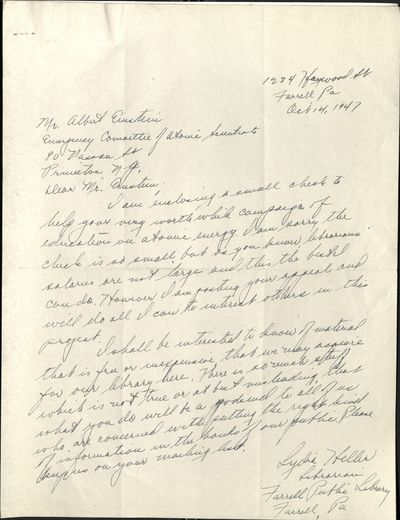 1224 Haywood St
Farrell Pa
Oct 14, 1947
Mr. Albert Einstein
Emergency Committee of Atomic Scientists
90 Nassau St
Princeton N.J.
Dear Mr. Einstein:
I am inclosing a small check to
help your very worth while campaign of
education in atomic energy. I am sorry the
check is so small but as you know librarians'
salaries are not large and this the best I
can do. However I am posting your appeal and
will do all I can to interest others in this
project.
I shall be interested to know of material
that is free or inexpensive, that we may acquire
for our library here. There is so much stuff
which is not true or at best misleading, that
what you do will be a godsend to all of us
who are concerned with putting the right kind
of information in the hands of our public. Please
keep us on your mailing list.
Lydia Heller
Librarian
Farrell Public Library
Farrell, Pa